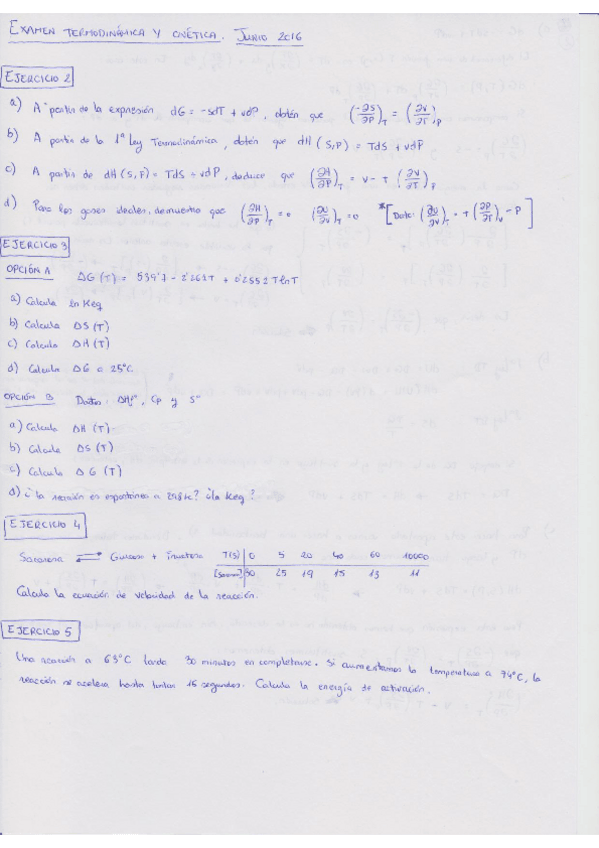 EXAMEN TERMODINÁMICA Y CINÉTICA. JUNIO 2016
EJERCICIO 2
a) A partir de la expresión dG = -sdT + vdP, obtén que (-∂S/∂P)_T = (∂V/∂T)_P
b) A partir de la 1ª Ley Termodinámica, obtén que dH (S,P) = TdS + vdP
c) A partir de dH (S,P) = TdS + vdP, deduce que (∂H/∂P)_T = V - T (∂V/∂T)_P
d) Para los gases ideales, demuestra que (∂H/∂P)_T = 0 (∂U/∂V)_T = 0 *[Dato: (∂U/∂V)_T = T (∂P/∂T)_V - P]
EJERCICIO 3
OPCIÓN A ΔG (T) = 539'7 - 2'262T + 0'2552 T ln T
a) Calcula ln Keq
b) Calcula ΔS (T)
c) Calcula ΔH (T)
d) Calcula ΔG a 25°C
OPCIÓN B Datos: ΔHfº, Cp y Sº
a) Calcula ΔH (T)
b) Calcula ΔS (T)
c) Calcula ΔG (T)
d) ¿la reacción es espontánea a 298K? ¿la Keq?
EJERCICIO 4
Sacarosa ⇌ Glucosa + fructosa T(s) 0 5 20 40 60 10000
30 25 19 15 13 11
Calcula la ecuación de velocidad de la reacción.
EJERCICIO 5
Una reacción a 63°C tarda 30 minutos en completarse. Si aumentamos la temperatura a 74°C, la
reacción se acelera hasta tardar 15 segundos. Calcula la energía de activación.